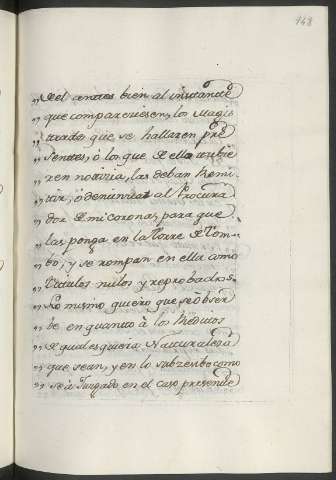 148
„ del antes bien al instante
„ que compareciesen, los Magis
„ trados que se hallaren pre
„ sentes, ò los que de ella tubie
„ ren noticia, las deban Remi
„ tir, ò denunciar al Procura
„ dor de mi corona, para que
„ las ponga en la Torre de Tom
„ bo, y se rompan en ella como
„ titulos nulos y reprobados.
„ Lo mismo quiero que se obser
„ be en quanto à los Indultos
„ de qualesquiera Naturaleza
„ que sean, y en lo subzesibo como
„ se à Juzgado en el caso presente